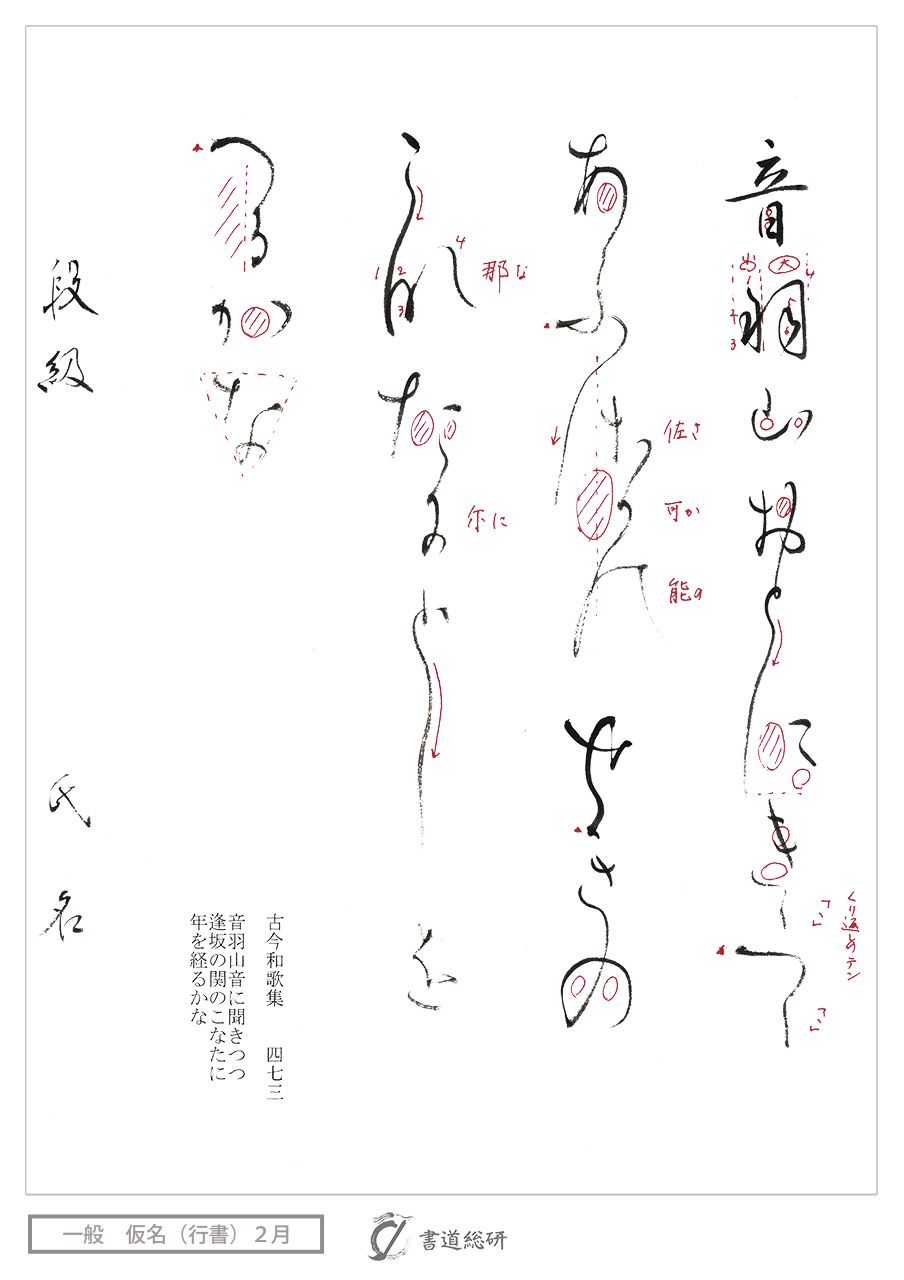 音羽山おとにきゝつゝ
くり返しのテン
あふ佐可能せきの
佐さ
可か
能の
こ那た尓としを
那な
尓に
へるかな
段級
氏名
古今和歌集　四七三
音羽山音に聞きつつ
逢坂の関のこなたに
年を経るかな
一般　仮名（行書）２月
書道総研